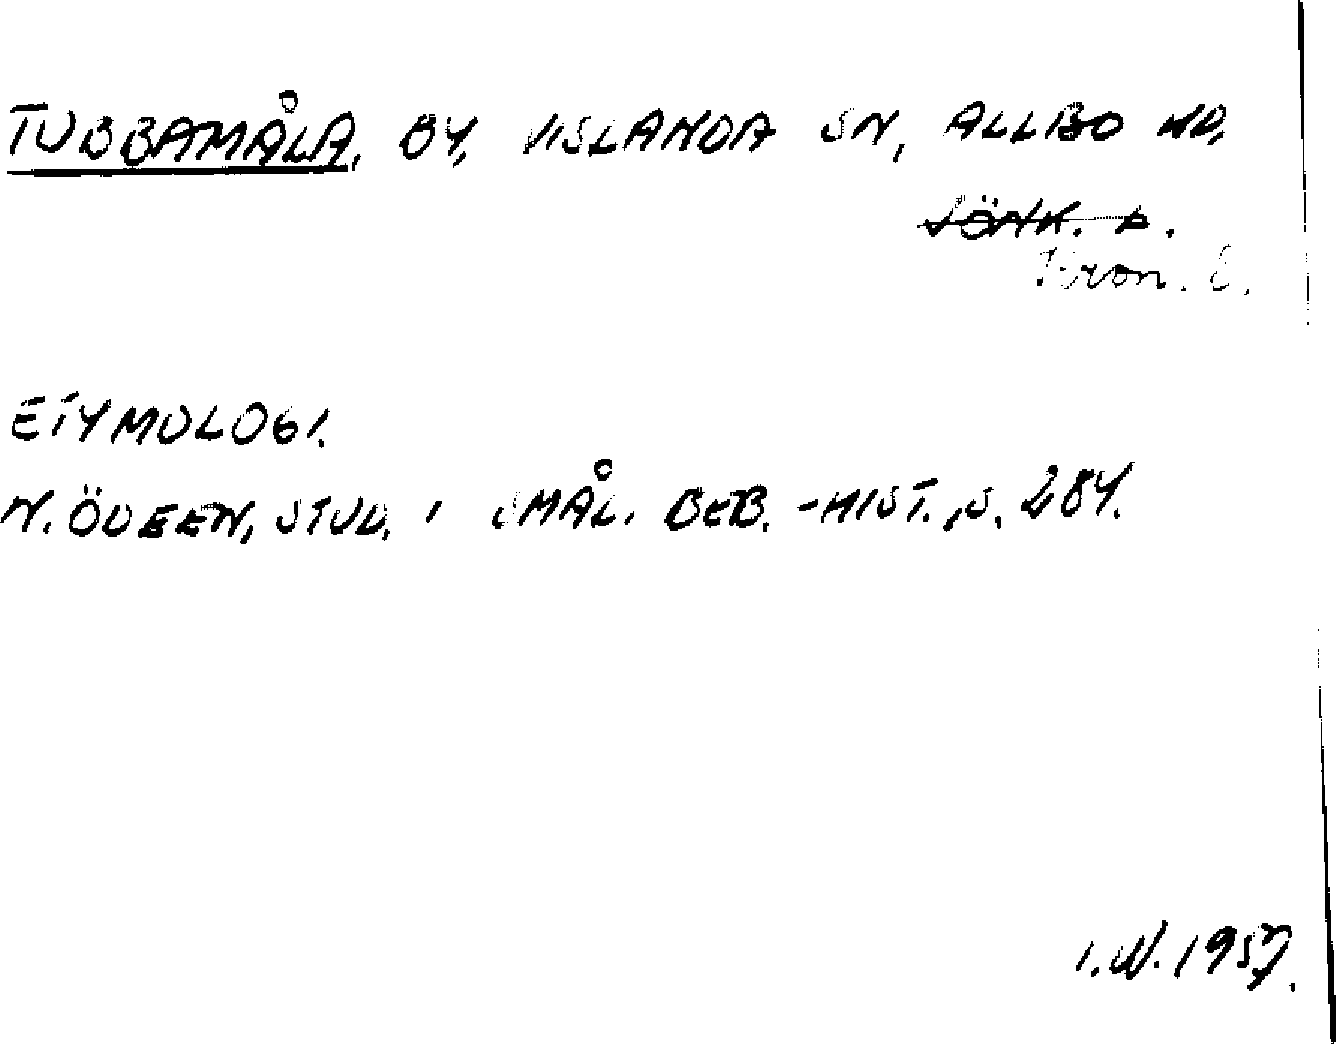 TUBBAMÅLA, BY, VISLANDA SN, ALLBO HD,
JÖNK. L.
Kron. L.
ETYMOLOGI.
N. ÖDEEN, STUD. I SMÅL. BEB.-HIST., S. 284.
I.N. 1957.